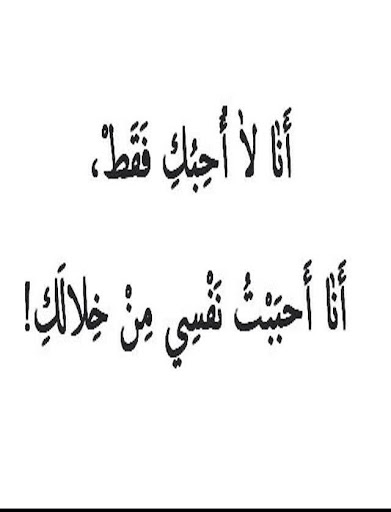 أَنَا لاَ أُحِبُكِ فَقَطْ،
أَنَا أَحبَبْتُ نَفْسِي مِنْ خِلالَكِ!